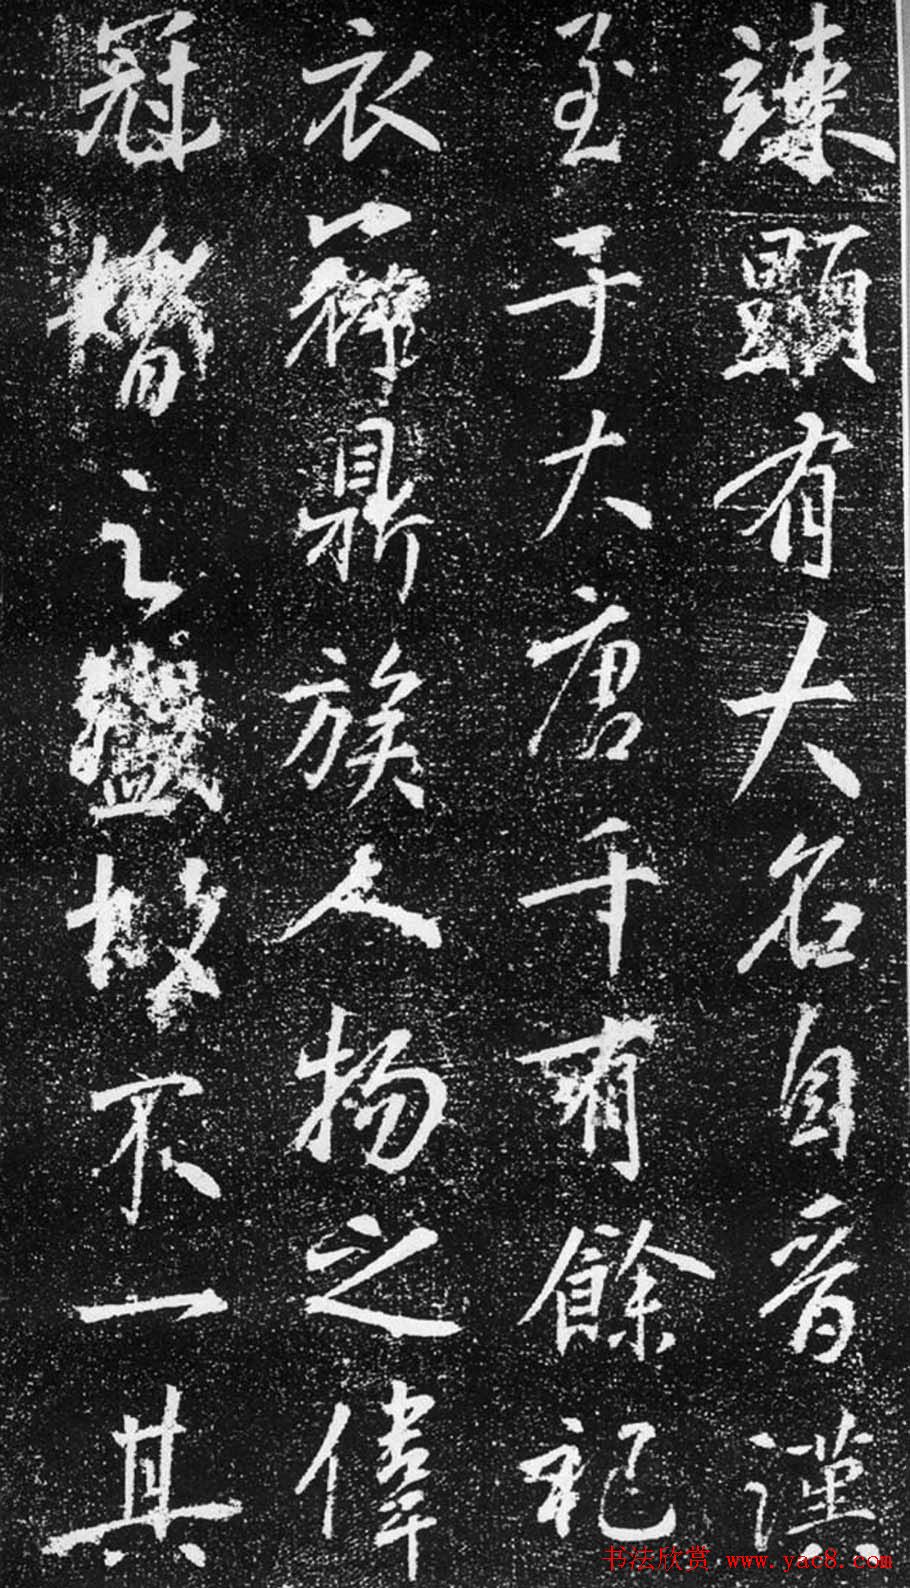 竦顯有大名自晉漢
至于大唐千有餘祀
衣鼎族人物之偉
冠之故不一其
书法欣赏 www.yac8.com